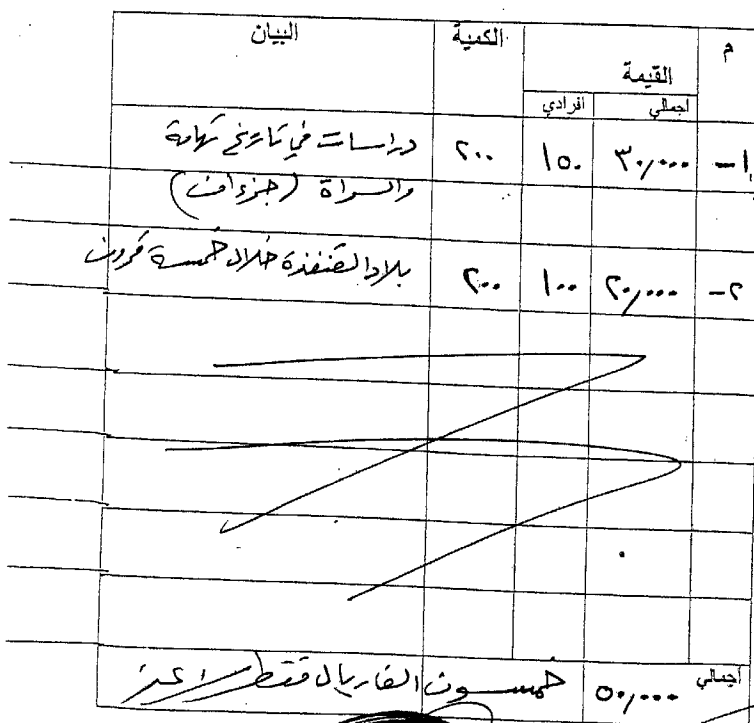 م القيمة الكمية البيان
اجمالي افرادي
١- ٣٠,٠٠٠ ١٥٠ ٢٠٠ دراسات في تاريخ تهامة
والسراة (جزءان)
٢- ٢٠,٠٠٠ ١٠٠ ٢٠٠ بلاد القنفذة خلال خمسة قرون
اجمالي ٥٠,٠٠٠ خمسون الف ريال فقط لا غير